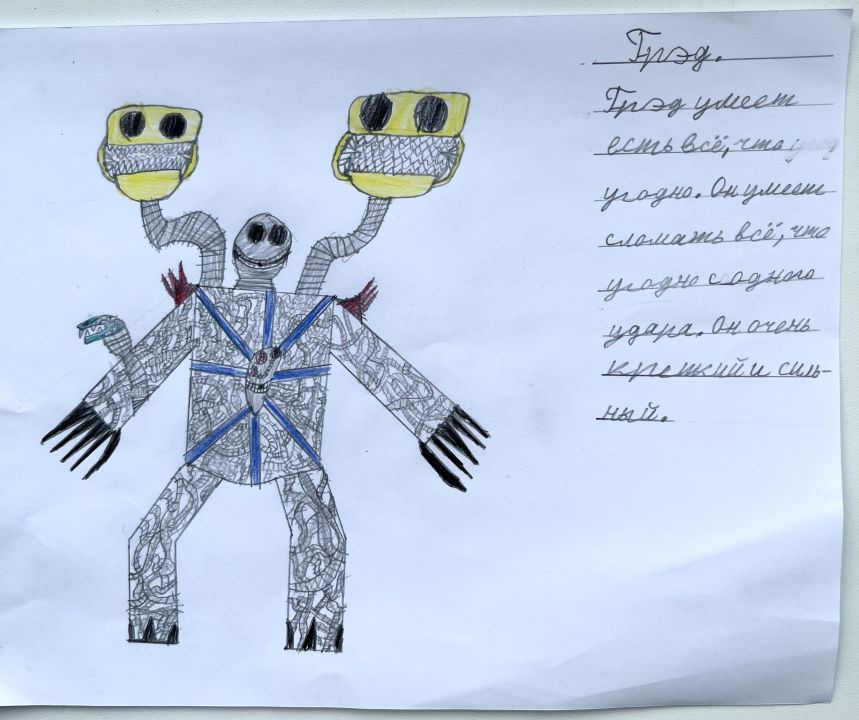 Грэд.
Грэд умеет
есть всё, что
угодно. Он умеет
сломать всё, что
угодно с одного
удара. Он очень
крепкий и силь-
ный.